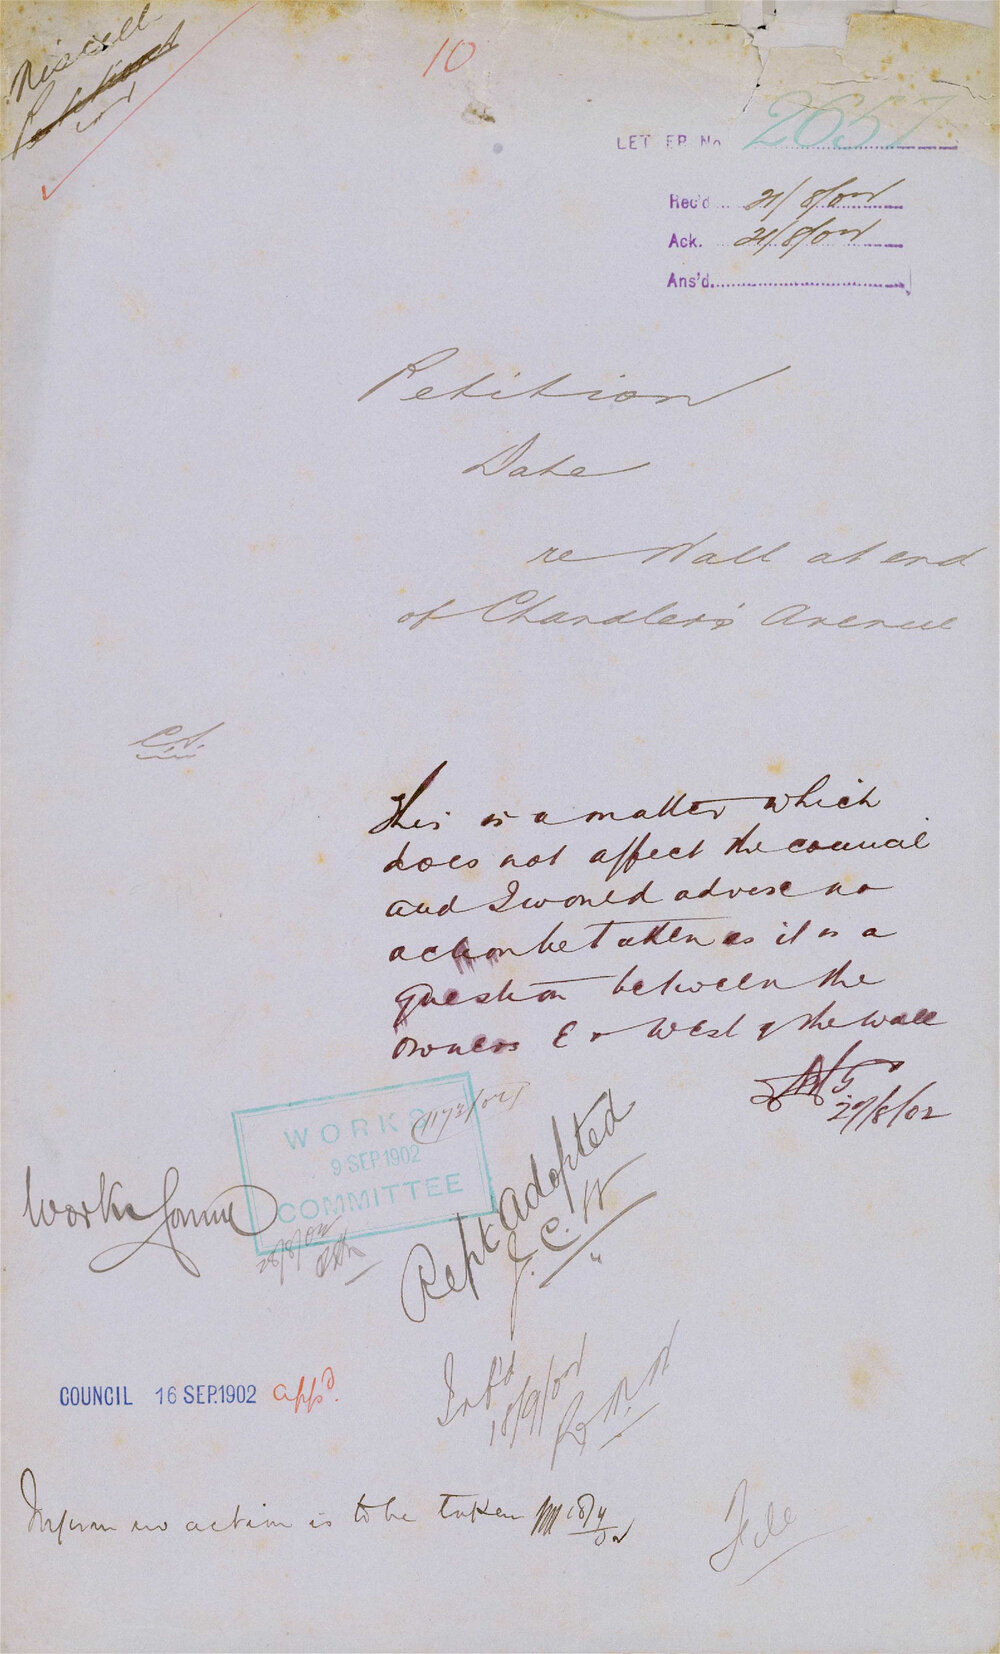 Miscell
10
LETTER No 2657
Rec'd 21/8/02
Ack. 21/8/02
Ans'd
Petition
Date
re Wall at end
of Chandler's Avenue
C.S.
This is a matter which
does not affect the council
and I would advise no
action be taken as it is a
question between the
owners E & West of the wall
27/8/02
WORKS
9 SEP 1902
COMMITTEE
Works Comme
28/8/02
Rept adopted
J. C. W
COUNCIL 16 SEP. 1902 appd.
Inf'd
18/9/02
Inform no action is to be taken 18/9/02
File